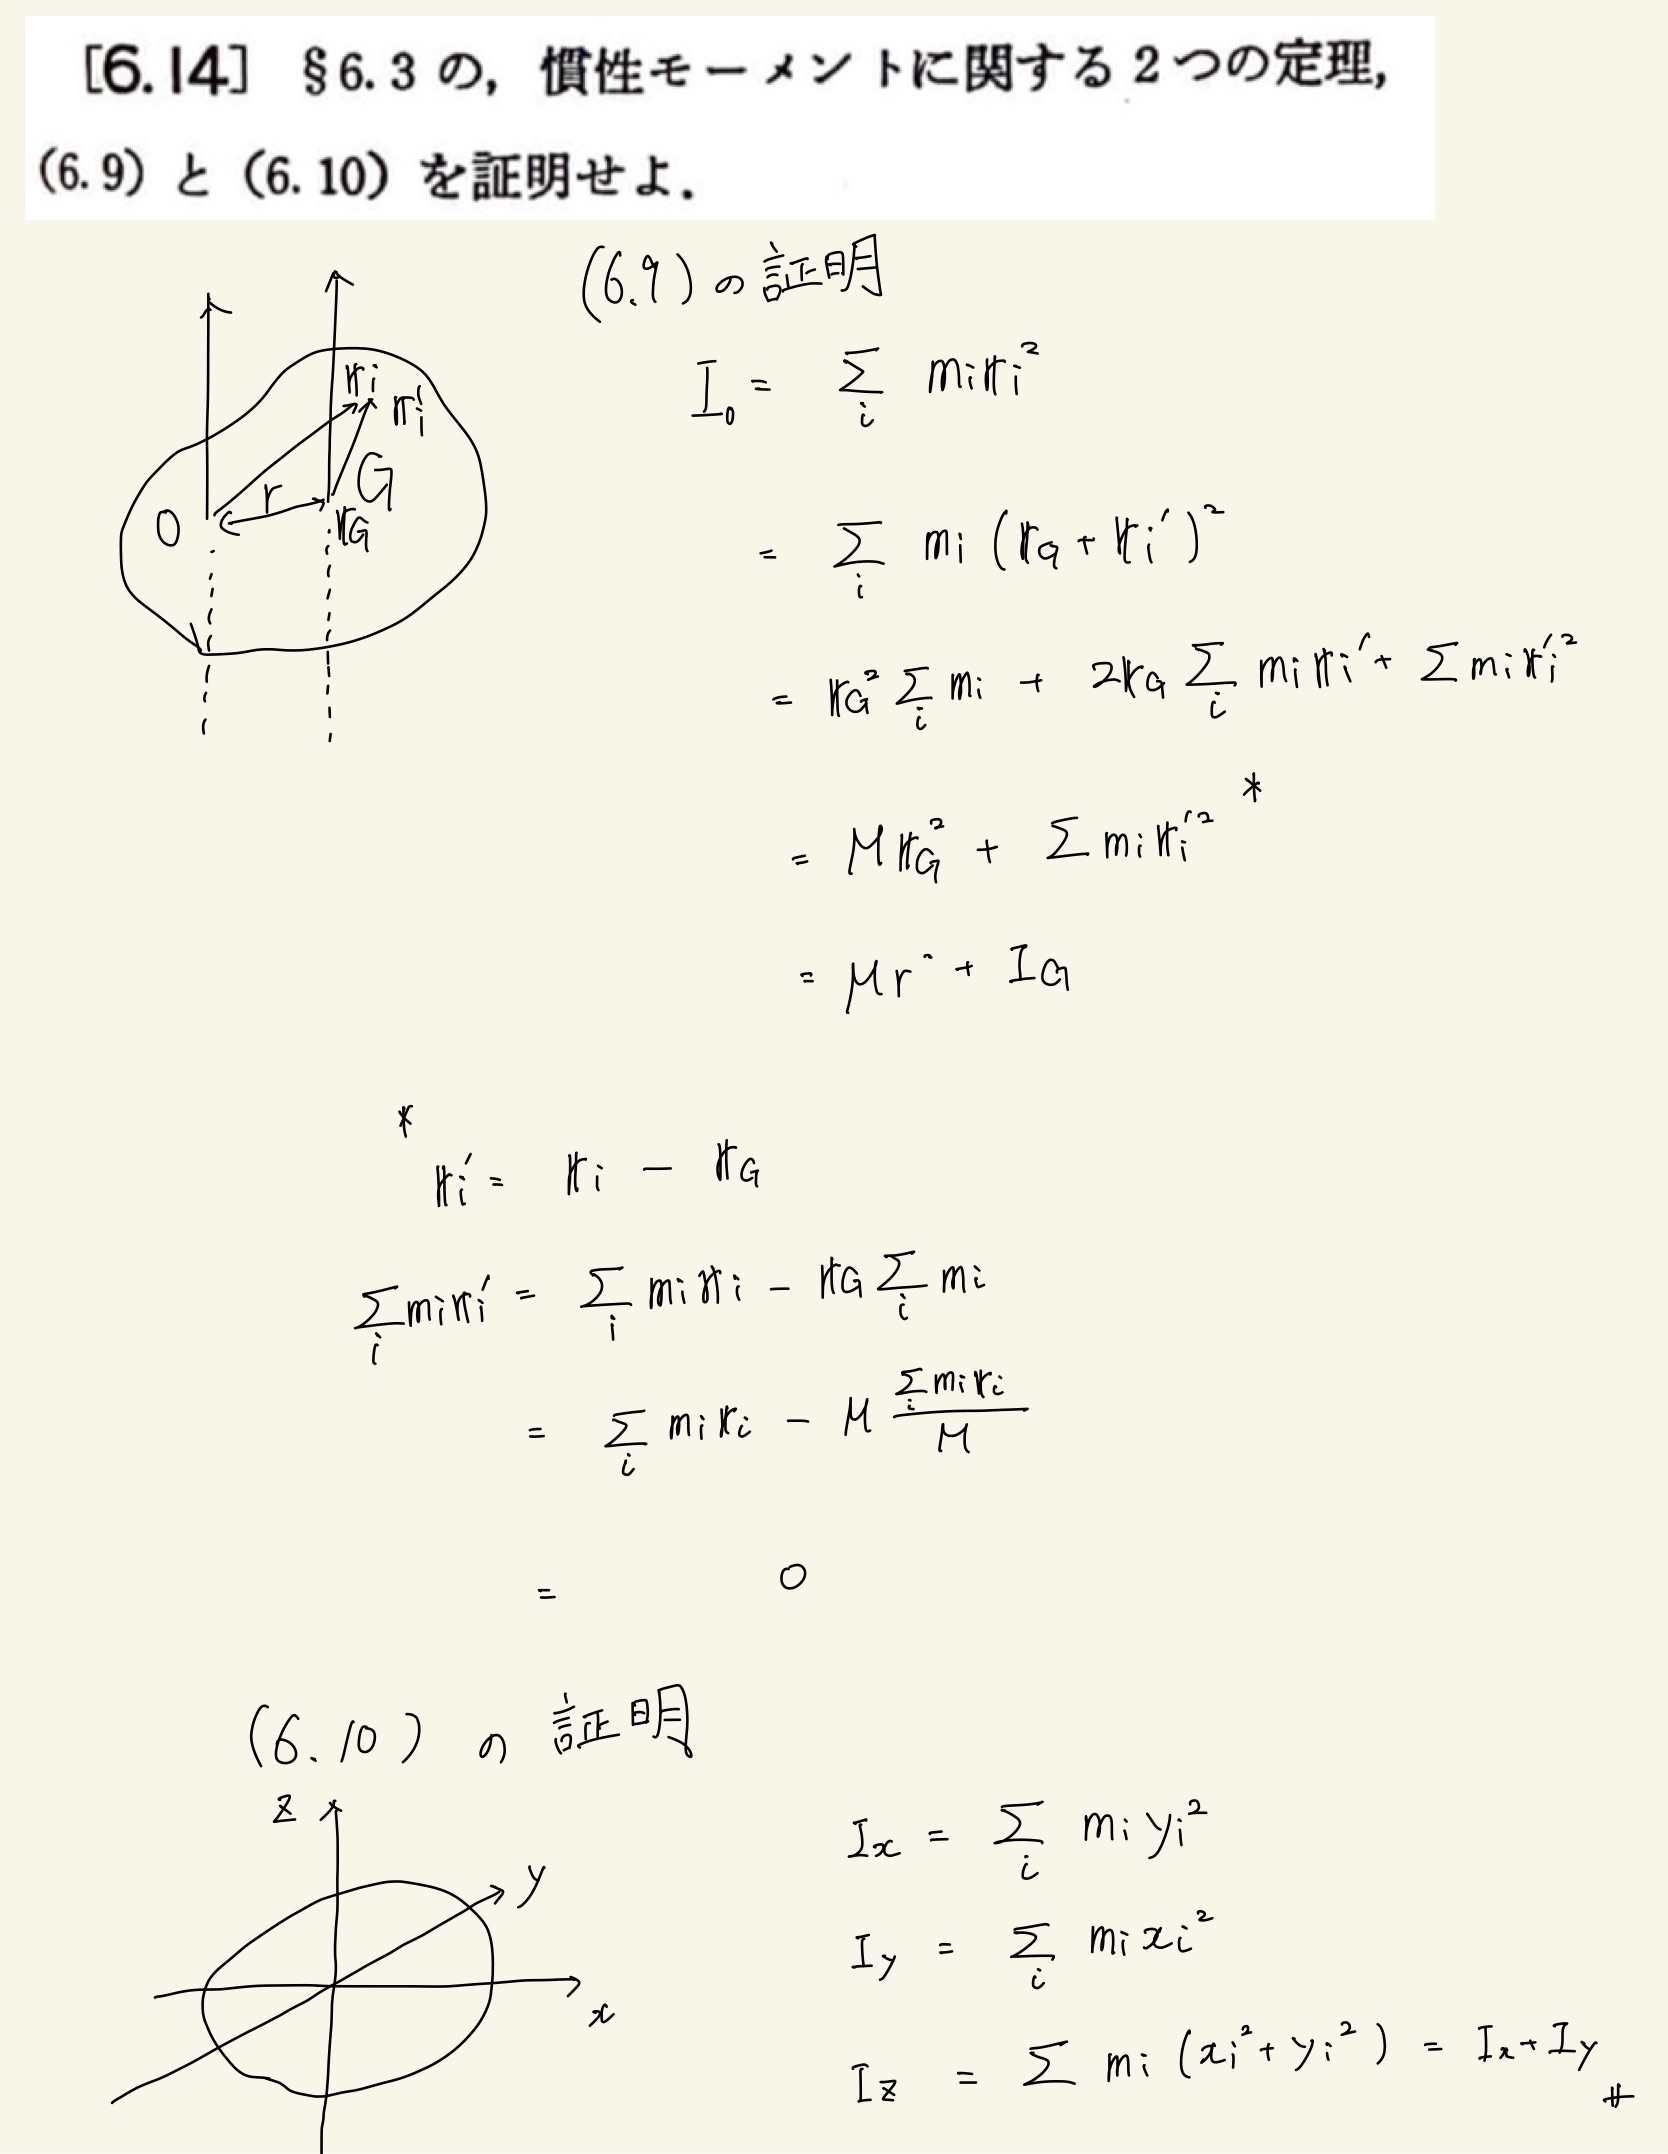 [6.14] §6.3 の, 慣性モーメントに関する 2 つの定理,
(6.9) と (6.10) を証明せよ.
(6.9) の 証明
O r G 𝕣i 𝕣i′ 𝕣G
I₀ = Σi mi𝕣i²
= Σi mi (𝕣G + 𝕣i′)²
= 𝕣G² Σi mi + 2𝕣G Σi mi𝕣i′ + Σ mi𝕣i′²
= M𝕣G² + Σ mi𝕣i′² *
= Mr² + IG
*
𝕣i′ = 𝕣i − 𝕣G
Σi mi𝕣i′ = Σi mi𝕣i − 𝕣G Σi mi
= Σi mi𝕣i − M Σi mi𝕣i / M
= 0
(6.10) の 証明
z y x
Ix = Σi mi yi²
Iy = Σi mi xi²
Iz = Σ mi (xi² + yi²) = Ix + Iy #